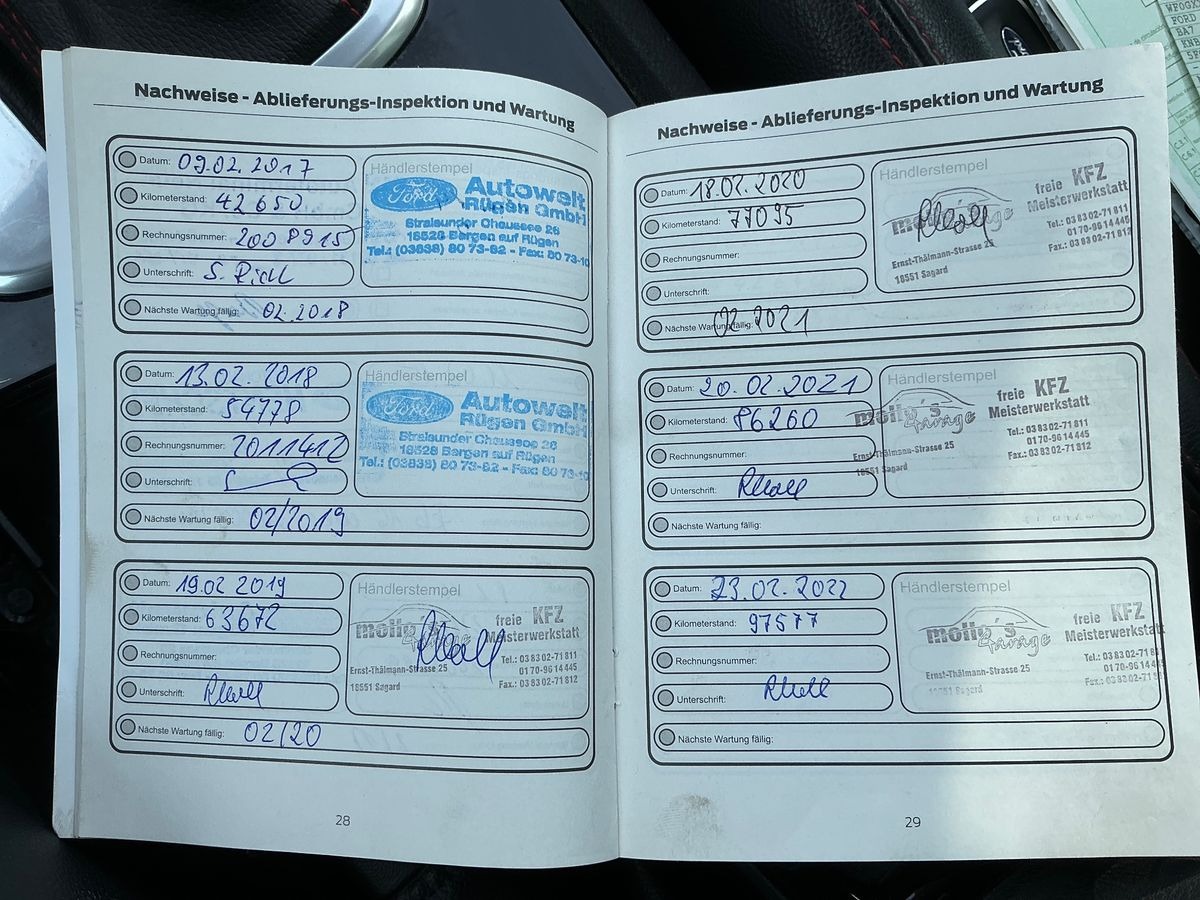 Nachweise - Ablieferungs-Inspektion und Wartung
Datum: 09.02.2017
Kilometerstand: 42650
Rechnungsnummer: 2008915
Unterschrift:
Nächste Wartung fällig: 02.2018
Händlerstempel
Ford Autowelt
Rügen GmbH
Stralsunder Chaussee 28
18528 Bergen auf Rügen
Tel.: (03838) 80 73-82 - Fax: 80 73-10
Datum: 13.02.2018
Kilometerstand: 54778
Rechnungsnummer: 2011412
Unterschrift:
Nächste Wartung fällig: 02/2019
Händlerstempel
Ford Autowelt
Rügen GmbH
Stralsunder Chaussee 28
18528 Bergen auf Rügen
Tel.: (03838) 80 73-82 - Fax: 80 73-10
Datum: 19.02.2019
Kilometerstand: 63672
Rechnungsnummer:
Unterschrift:
Nächste Wartung fällig: 02/20
Händlerstempel
molly's Garage
freie KFZ
Meisterwerkstatt
Ernst-Thälmann-Strasse 25
18551 Sagard
Tel.: 03 83 02-71 811
01 70-96 14 445
Fax.: 03 83 02-71 812
28
Nachweise - Ablieferungs-Inspektion und Wartung
Datum: 18.02.2020
Kilometerstand: 77095
Rechnungsnummer:
Unterschrift:
Nächste Wartung fällig: 02.2021
Händlerstempel
molly's Garage
freie KFZ
Meisterwerkstatt
Ernst-Thälmann-Strasse 25
18551 Sagard
Tel.: 03 83 02-71 811
01 70-96 14 445
Fax.: 03 83 02-71 812
Datum: 20.02.2021
Kilometerstand: 86260
Rechnungsnummer:
Unterschrift:
Nächste Wartung fällig:
Händlerstempel
molly's Garage
freie KFZ
Meisterwerkstatt
Ernst-Thälmann-Strasse 25
18551 Sagard
Tel.: 03 83 02-71 811
01 70-96 14 445
Fax.: 03 83 02-71 812
Datum: 23.02.2022
Kilometerstand: 97577
Rechnungsnummer:
Unterschrift:
Nächste Wartung fällig:
Händlerstempel
molly's Garage
freie KFZ
Meisterwerkstatt
Ernst-Thälmann-Strasse 25
18551 Sagard
Tel.: 03 83 02-71 811
01 70-96 14 445
Fax.: 03 83 02-71 812
29